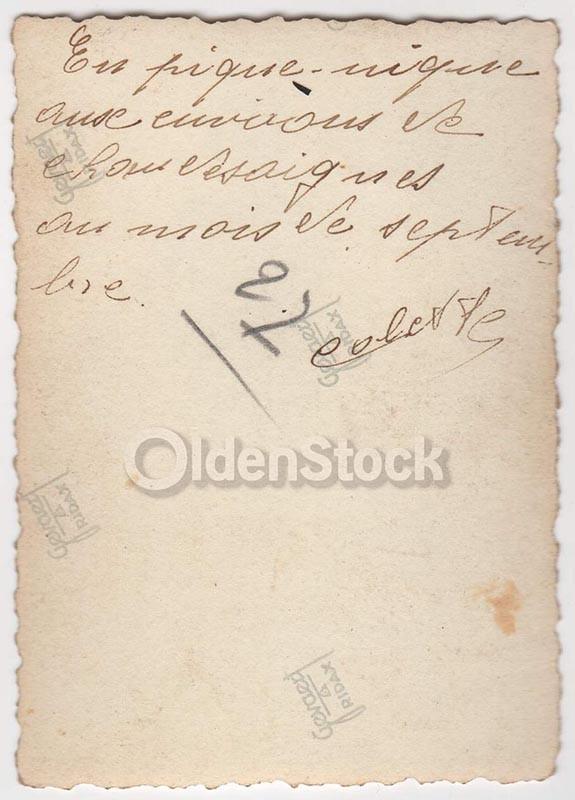 En pique-nique
aux environs de
chaudesaigues
au mois de septem-
bre.
27
colette
OldenStock
Gevaert
RIDAX
Gevaert
RIDAX
Gevaert
RIDAX
Gevaert
RIDAX